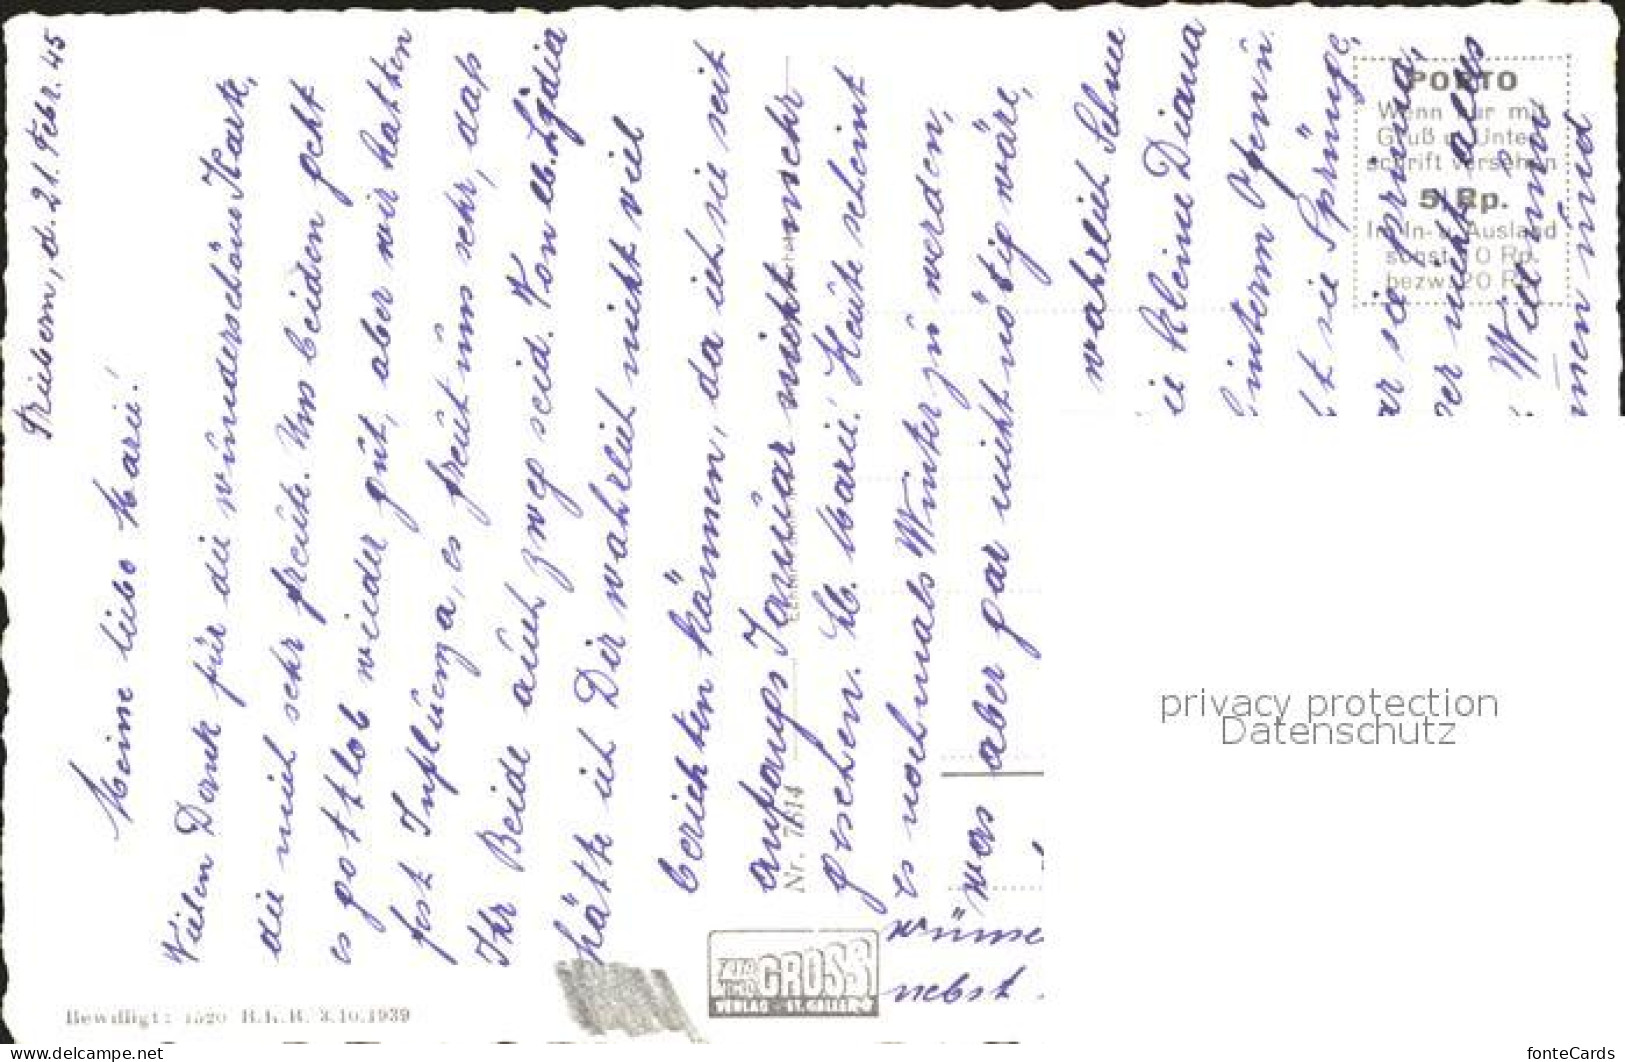 Triebern, d. 21. Febr. 45
Meine liebe Marie!
Vielen Dank für die wunderschöne Karte,
die mich sehr freute. Uns beiden geht
es gottlob wieder gut, aber wir hatten
fest Influenza, es freut uns sehr, dass
Ihr Beide auch zweg seid. Von lb. Lydia
hätte ich Dir wahrlich nicht viel
berichten können, da ich sie seit
anfangs Januar nicht mehr
gesehen. Lb. Marie! Heute scheint
es nochmals Winter zu werden,
was aber gar nicht nötig wäre,
wahrlich
ie kleine Diana
hinterm Ofen
t sie Sprünge,
ar sie
er nicht alles
Will nun
men und
wünsc
nebst
PORTO
Wenn nur mit
Gruß u. Unter-
schrift versehen
5 Rp.
Im In- u. Ausland
sonst 10 Rp.
bezw. 20 Rp.
Nr. 7614
FOTO
GROSS
VERLAG ST. GALLEN
Bewilligt: 1520 B.R.B. 3.10.1939
privacy protection
Datenschutz
www.delcampe.net
fonteCards